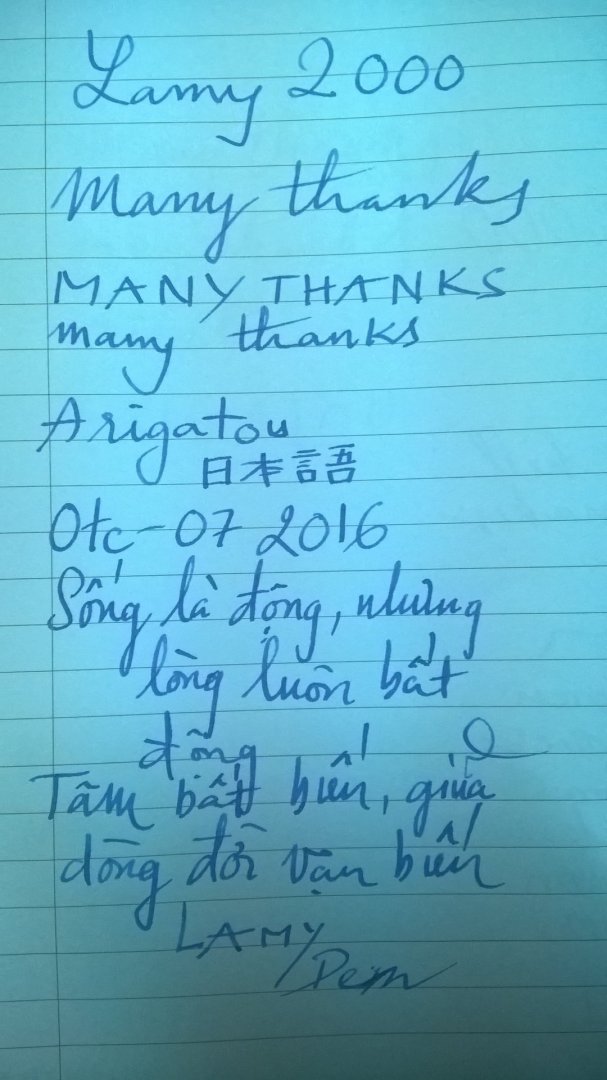 Lamy 2000
Many thanks
MANY THANKS
many thanks
Arigatou
日本語
Otc-07 2016
Sống là động, nhưng
lòng luôn bất
động
Tâm bất biến, giữa
dòng đời vạn biến
LAMY
Dem